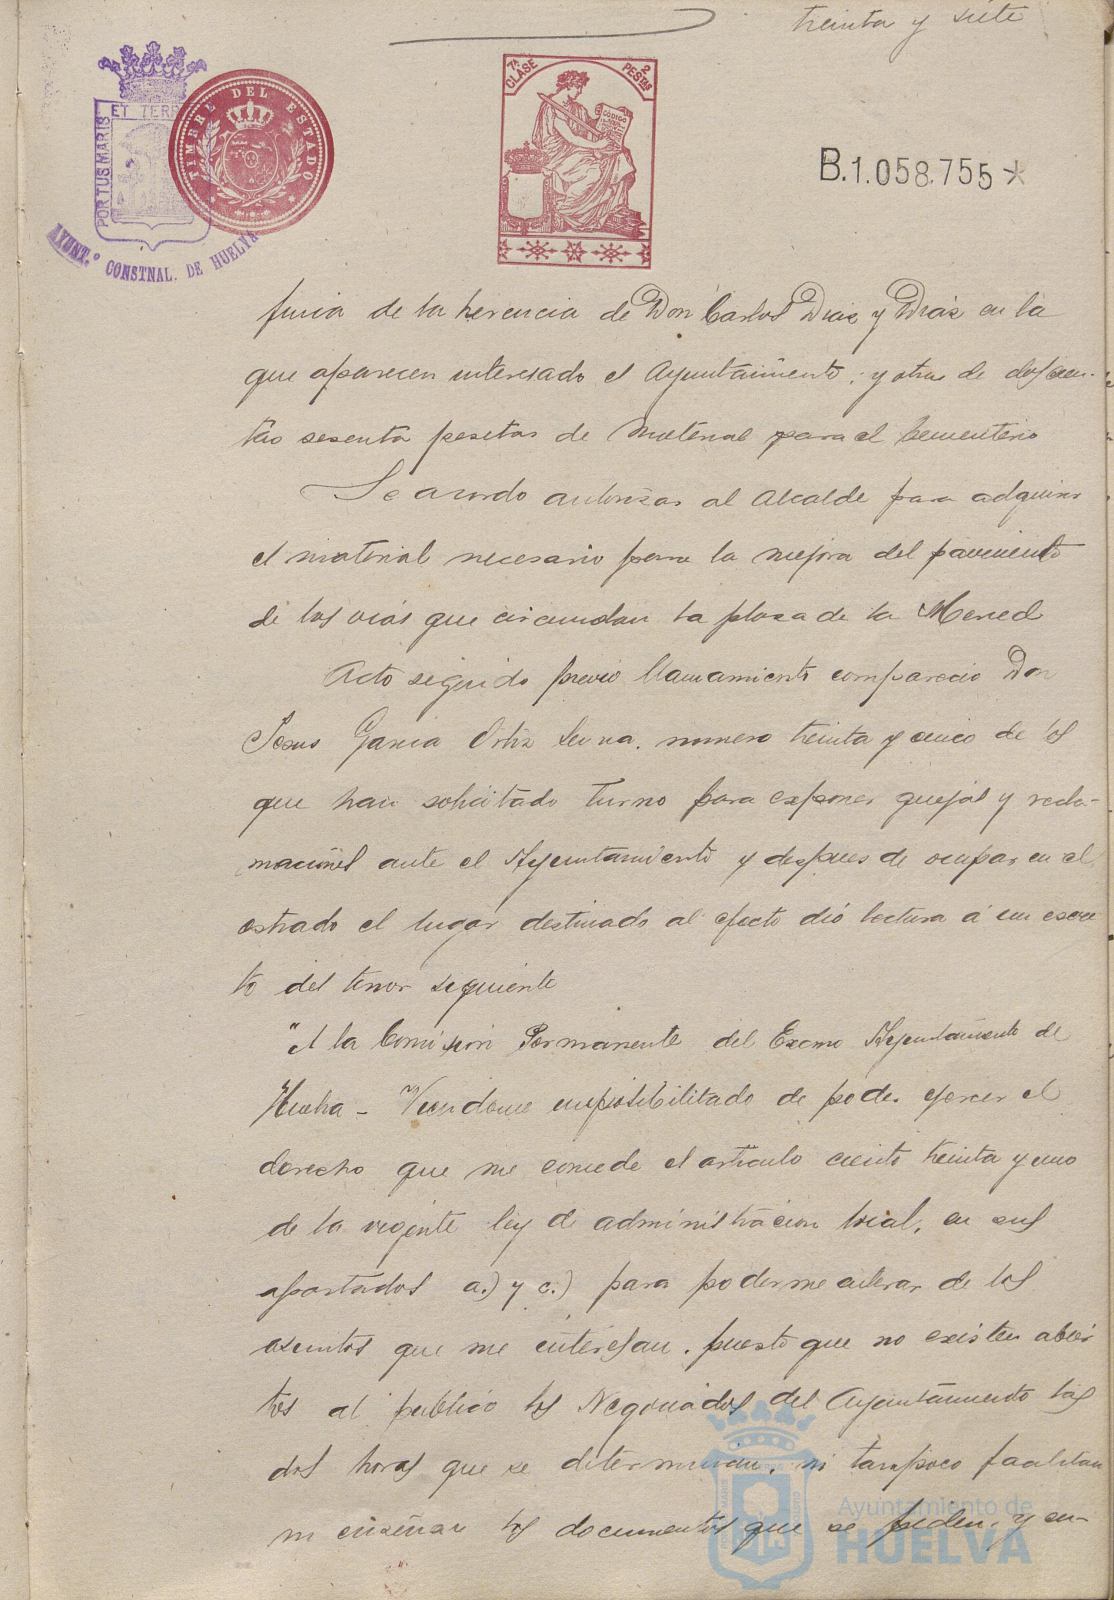 treinta y siete
7ª CLASE
2 PESTAS
CÓDIGO
TIMBRE DEL ESTADO
PORTUS MARIS ET TERR
AYUNT.º CONSTNAL. DE HUELVA
B.1.058.755*
de la herencia de Don Carlos Diaz y Diaz en la
que aparecen interesado el Ayuntamiento; y otra de doscien-
tas sesenta pesetas de material para el Cementerio
Se acordo autorizar al Alcalde para adquirir
el material necesario para la mejora del pavimento
de las vias que circundan la plaza de la Merced
Acto seguido previo llamamiento comparecio Don
Jesus Garcia Ortiz Serna, numero treinta y cinco de los
que han solicitado turno para exponer quejas y recla-
maciones ante el Ayuntamiento y despues de ocupar en el
estrado el lugar destinado al efecto dió lectura á un escri
to del tenor siguiente
"A la Comision Permanente del Excmo Ayuntamiento de
Huelva - Viendome imposibilitado de poder ejercer el
derecho que me concede el articulo ciento treinta y uno
de la vigente ley de administracion local, en sus
apartados a.) y c.) para poderme enterar de los
asuntos que me interesan, puesto que no existen abier
tos al publico los Negociados del Ayuntamiento las
dos horas que se determinan, ni tampoco facilitan
ni enseñan los documentos que se piden, y en-
Ayuntamiento de
HUELVA